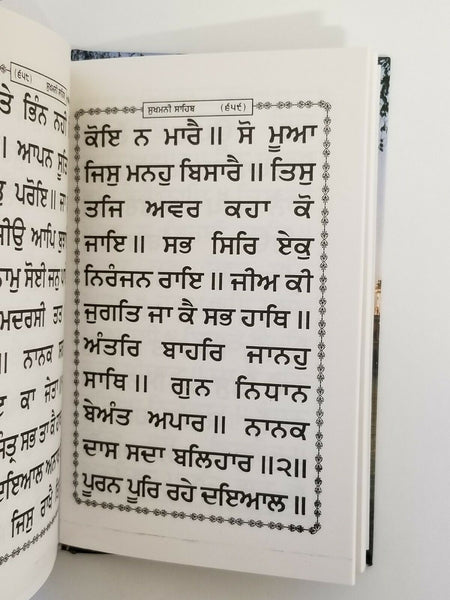 (੬੫੮) ਸੁਖਮਨੀ ਸਾਹਿਬ
ਤੇ ਭਿੰਨ ਨਹੀ
॥ ਆਪਨ
ਪਰੋਇ॥
ਆਪਿ
ਸੋਈ ਜਨੁ
ਤਤ
॥ ਨਾਨਕ
ਕਾ ਜੇਤਾ
ਸਭ ਤਾ ਕੈ
ਦਇਆਲ
ਜਿਸੁ ਰਾਖੈ
ਸੁਖਮਨੀ ਸਾਹਿਬ (੬੫੯)
ਕੋਇ ਨ ਮਾਰੈ॥ ਸੋ ਮੂਆ
ਜਿਸੁ ਮਨਹੁ ਬਿਸਾਰੈ॥ ਤਿਸੁ
ਤਜਿ ਅਵਰ ਕਹਾ ਕੋ
ਜਾਇ॥ ਸਭ ਸਿਰਿ ਏਕੁ
ਨਿਰੰਜਨ ਰਾਇ॥ ਜੀਅ ਕੀ
ਜੁਗਤਿ ਜਾ ਕੈ ਸਭ ਹਾਥਿ॥
ਅੰਤਰਿ ਬਾਹਰਿ ਜਾਨਹੁ
ਸਾਥਿ॥ ਗੁਨ ਨਿਧਾਨ
ਬੇਅੰਤ ਅਪਾਰ॥ ਨਾਨਕ
ਦਾਸ ਸਦਾ ਬਲਿਹਾਰ॥੨॥
ਪੂਰਨ ਪੂਰਿ ਰਹੇ ਦਇਆਲ॥